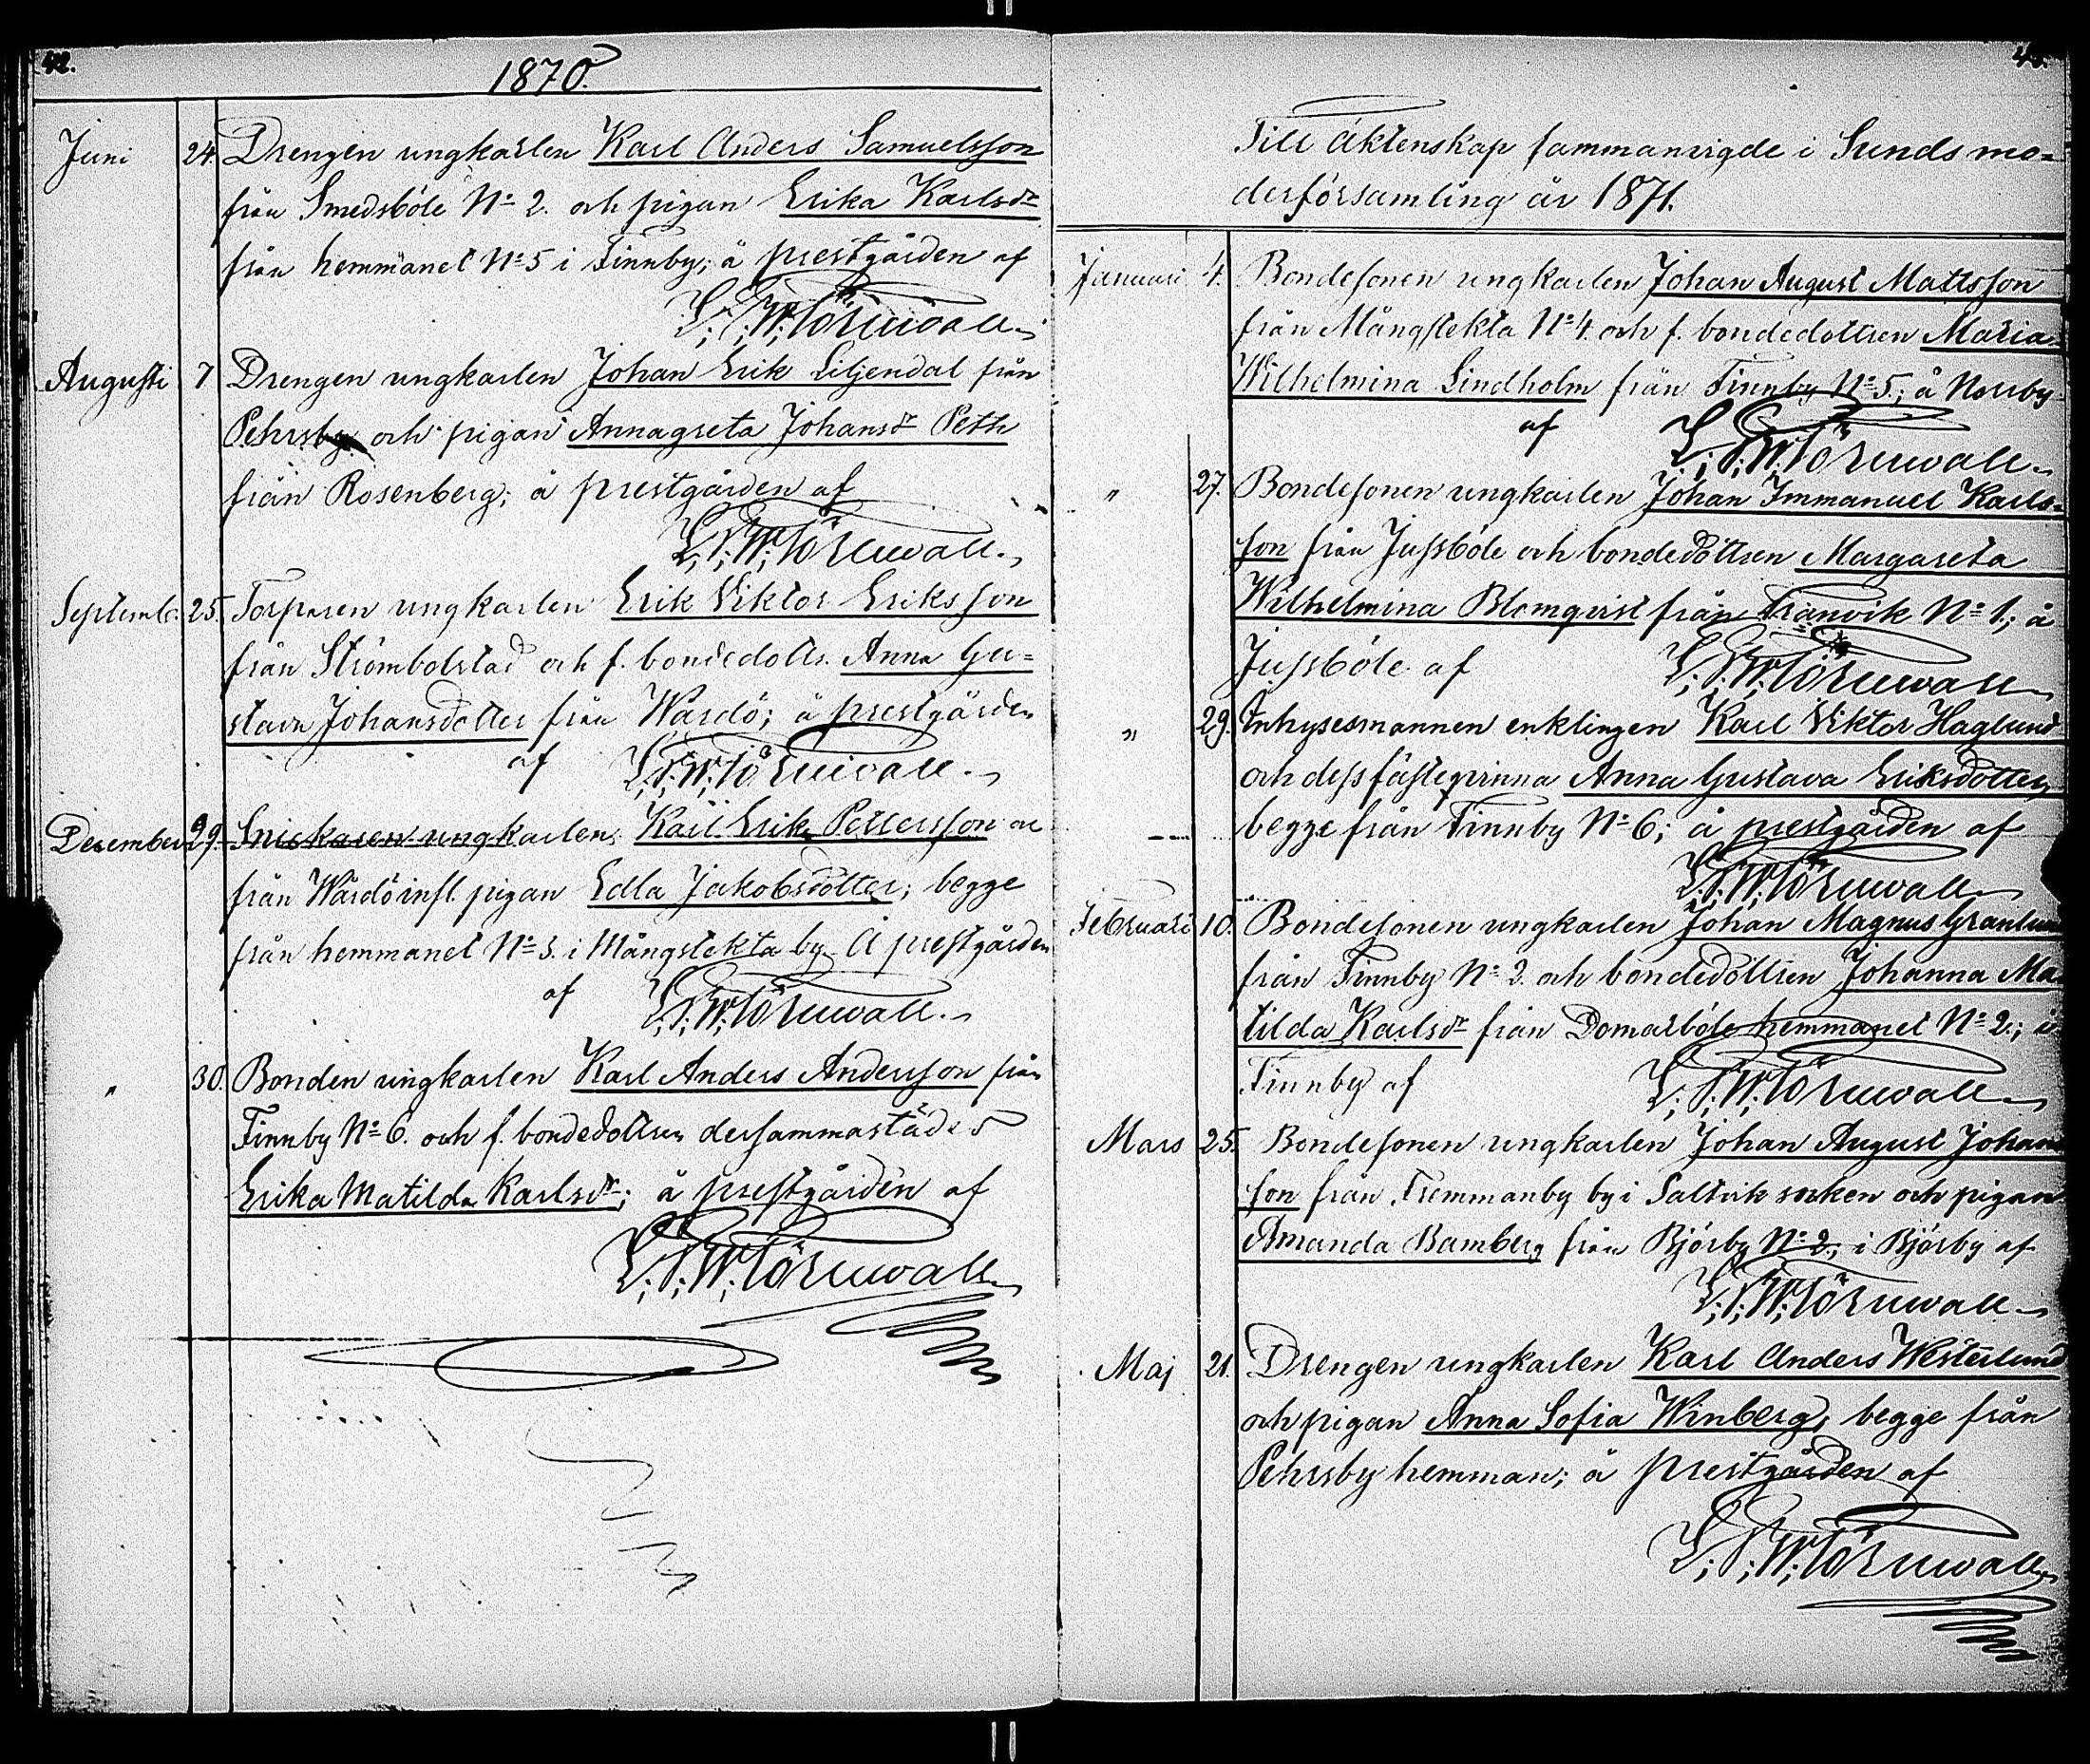 42.
1870.
Juni 24. Drengen ungkarlen Karl Anders Samuelsson
från Smedsböle No 2. och pigan Erika Karlsdr
från hemmanet No 5 i Finnby; å prestgården af
L. T. W. Törnwall.
Augusti 7 Drengen ungkarlen Johan Erik Liljendal från
Pehrsby och pigan Annagreta Johansdr Peth
från Rosenberg; å prestgården af
L. T. W. Törnwall.
Septemb. 25. Torparen ungkarlen Erik Viktor Eriksson
från Strömbolstad och f. bondedottr. Anna Gu=
stava Johansdotter från Wårdö; å prestgården
af L. T. W. Törnwall.
December 29. Snickaren ungkarlen Karl Erik Pettersson
från Wårdö infl. pigan Edla Jakobsdotter; begge
från hemmanet No 3. i Mångstekta by. Å prestgården
af L. T. W. Törnwall.
" 30. Bonden ungkarlen Karl Anders Andersson från
Finnby No 6. och f. bondedottren dersammastädes
Erika Matilda Karlsdr; å prestgården af
L. T. W. Törnwall
Till äktenskap sammanvigde i Sunds mo=
derförsamling år 1871.
Januari 4. Bondesonen ungkarlen Johan August Mattsson
från Mångstekta No 4. och f. bondedottren Maria
Wilhelmina Lindholm från Finnby No 5.; å Norrby
af L. T. W. Törnwall.
" 27. Bondesonen ungkarlen Johan Immanuel Karls=
son från Jussböle och bondedottren Margareta
Wilhelmina Blomqvist från Tranvik No 1.; å
Jussböle af L. T. W. Törnwall
" 29. Inhysesmannen enklingen Karl Viktor Haglund
och dess fästeqvinna Anna Gustava Eriksdotter
begge från Finnby No 6; å prestgården af
L. T. W. Törnwall
Februari 10. Bondesonen ungkarlen Johan Magnus Granlun
från Finnby No 2. och bondedottren Johanna Ma
tilda Karlsdr från Domarböle hemmanet No 2.; i
Finnby af L. T. W. Törnwall
Mars 25. Bondesonen ungkarlen Johan August Johans
son från Tremmanby by i Saltvik socken och pigan
Amanda Bamberg från Björby No 2.; i Björby af
L. T. W. Törnwall
Maj 21. Drengen ungkarlen Karl Anders Westerlund
och pigan Anna Sofia Winberg, begge från
Pehrsby hemman; å prestgården af
L. T. W. Törnwall